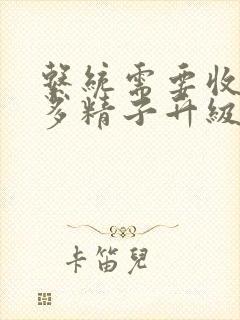 繫統需要收
多精子升級
卡笛兒